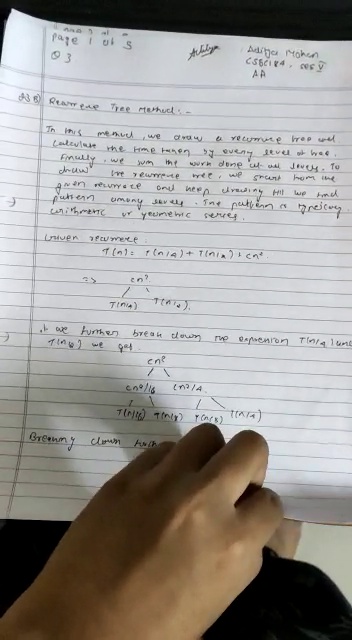 Page 1 of 3
Q 3
Aditya Mohan
CSE
AA
Recurrence Tree Method:-
In this method, we draw a recurrence tree and
calculate the time taken by every level of tree.
Finally, we sum the work done at all levels. To
draw the recurrence tree, we start from the
given recurrence and keep drawing till we find
pattern among levels. The pattern is typically
arithmetic or geometric series.
Given recurrence
T(n) = T(n/4) + T(n/2) + cn²
=> cn²
T(n/4) T(n/2)
if we further break down the expression T(n/4) and
T(n/2) we get.
cn²
cn²/16 cn²/4
T(n/16) T(n/8) T(n/8) T(n/4)
Breaking down